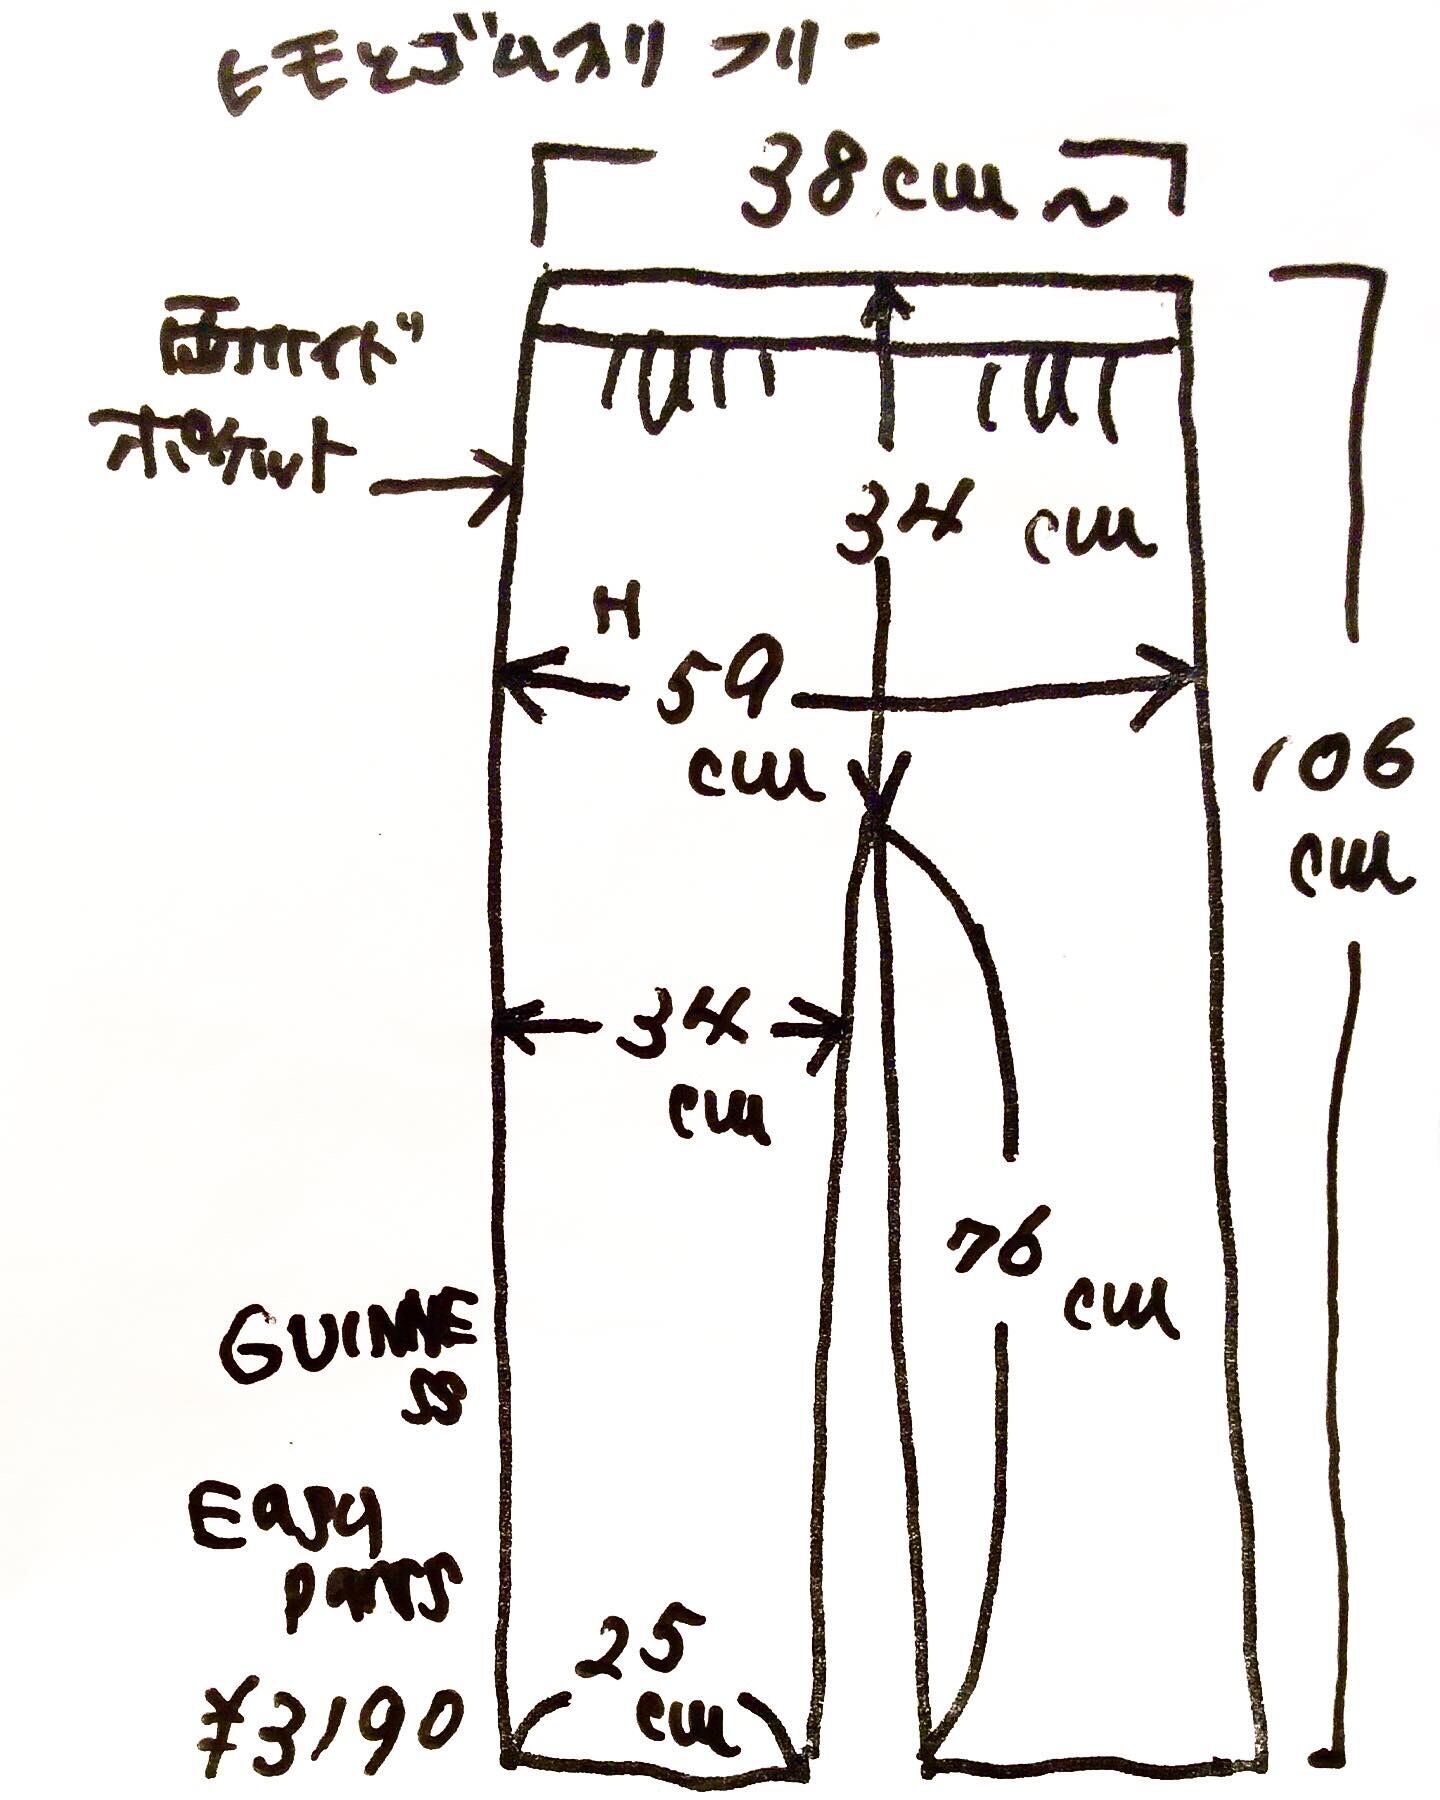 ヒモとゴム入り フリー
38cm～
両サイド
ポケット
34 cm
H
59
cm
106
cm
34
cm
76
cm
GUINNE
SS
Easy
pants
25
cm
¥3190